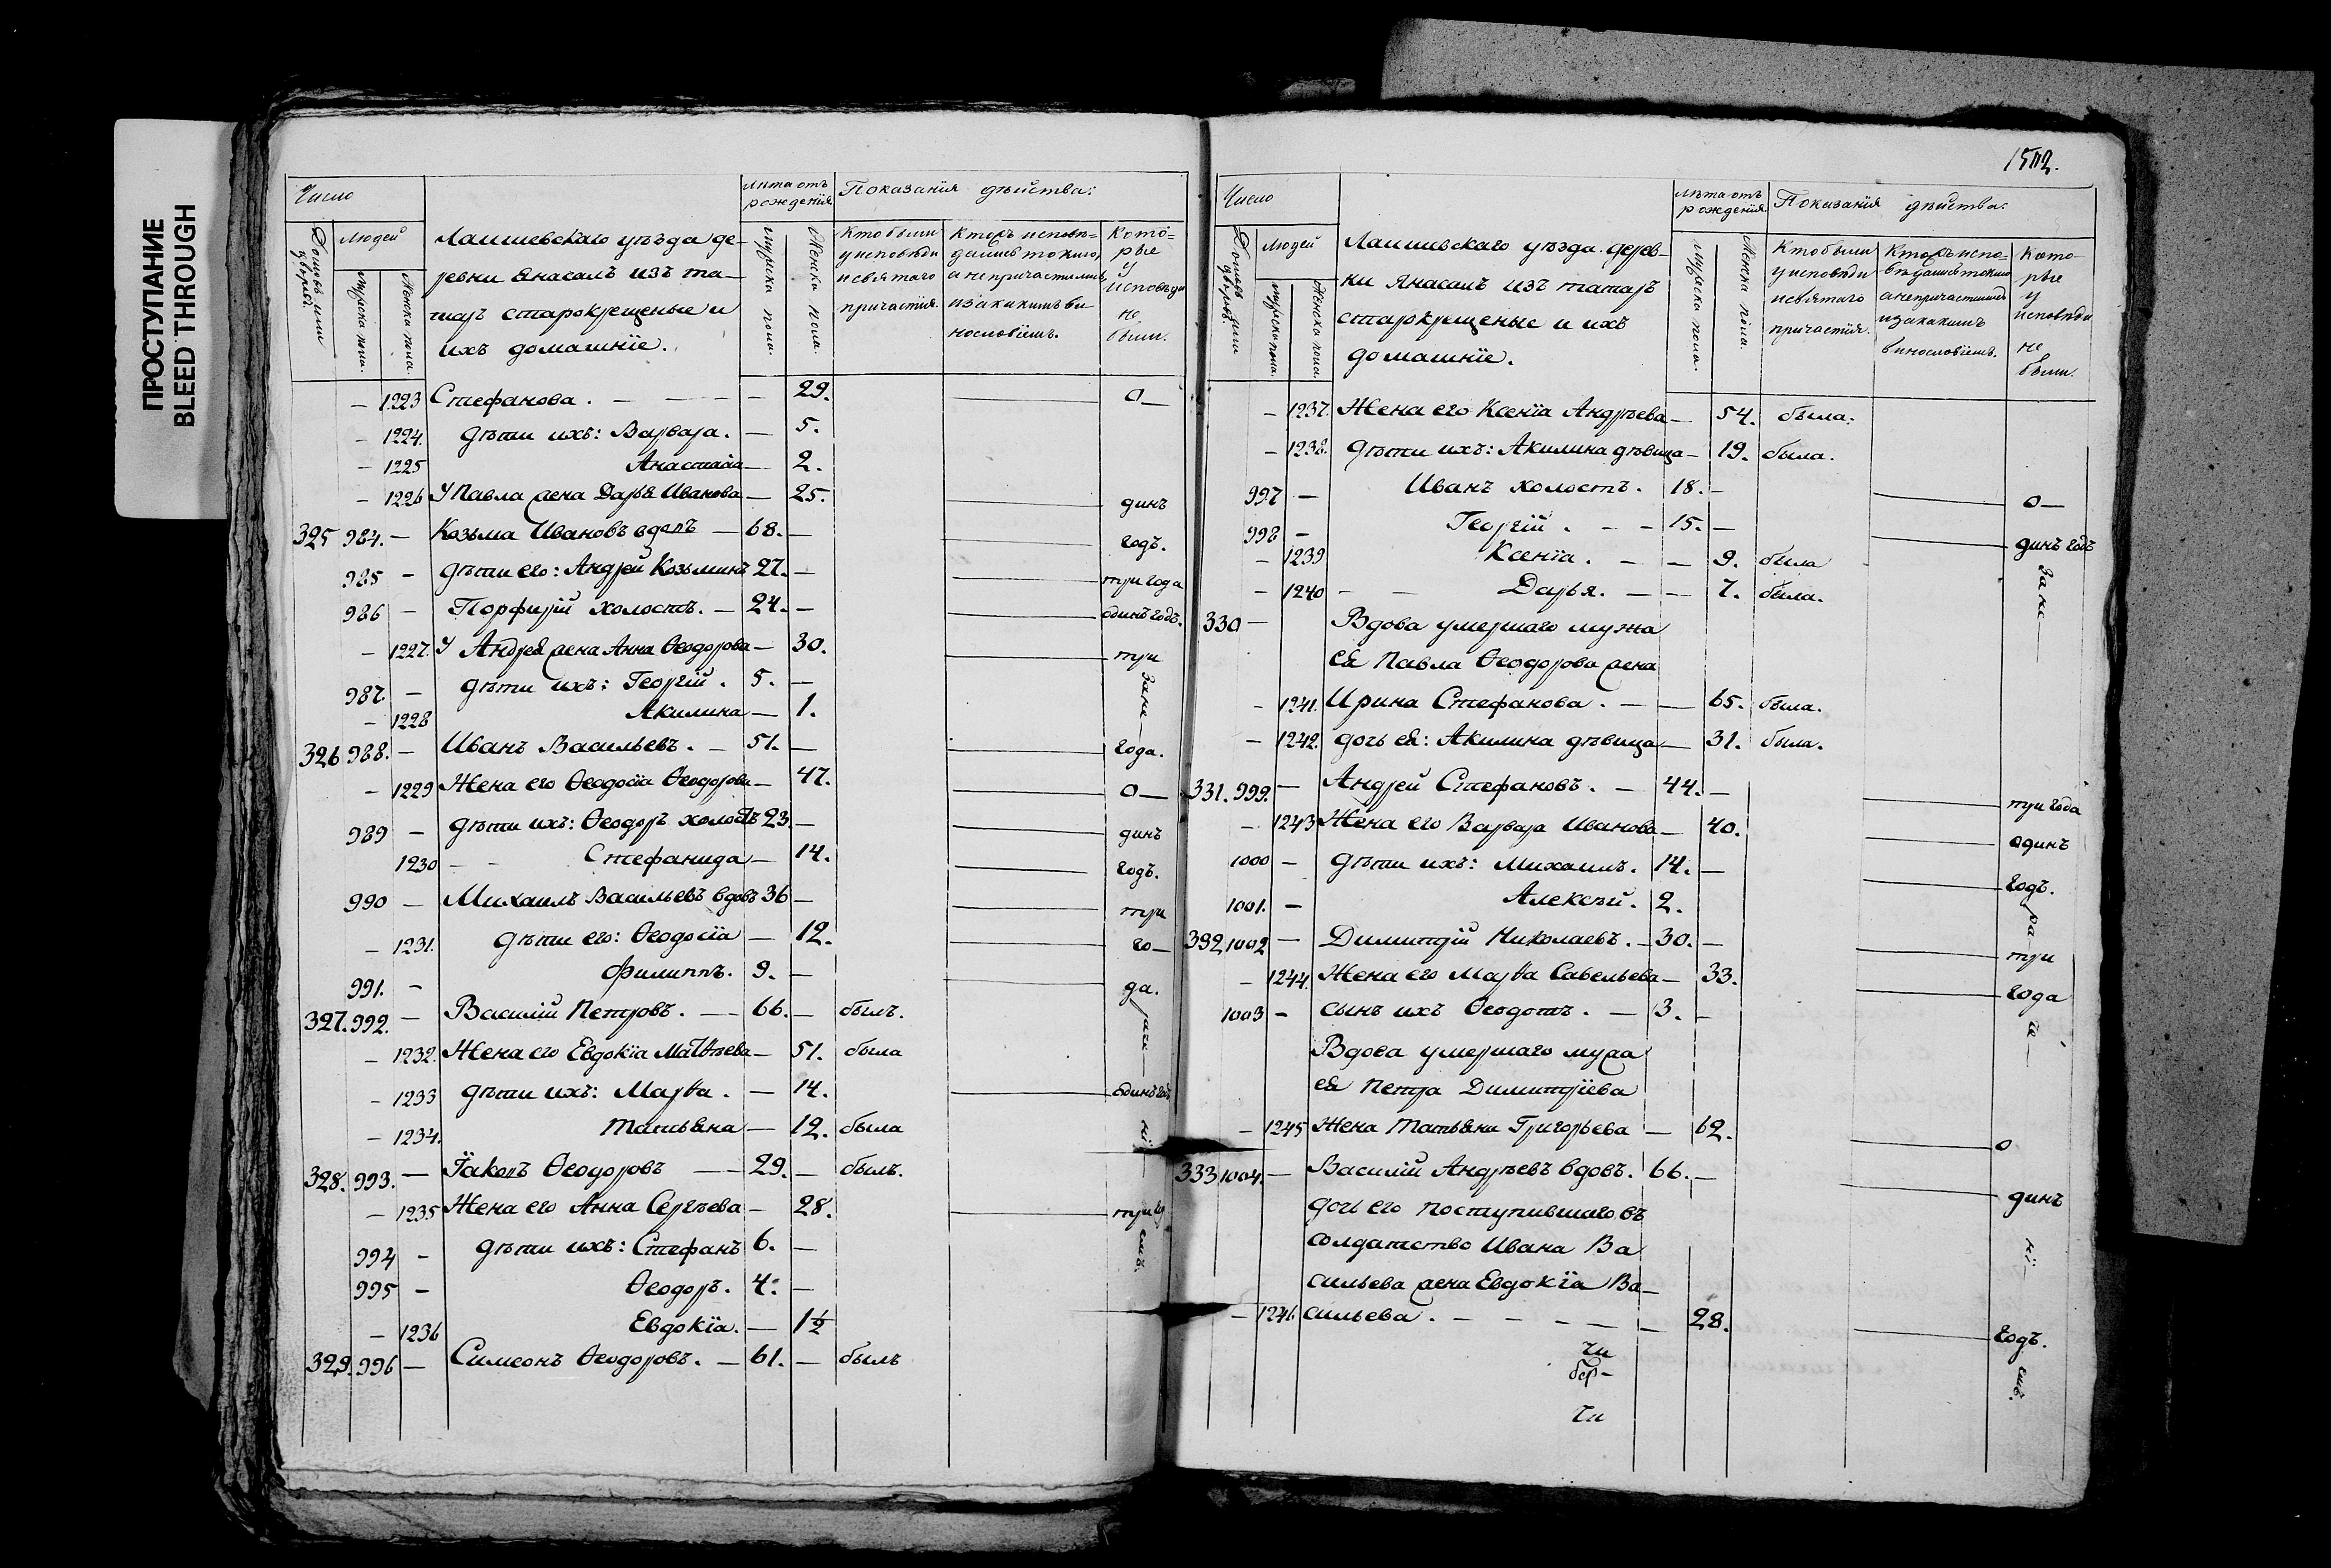 ПРОСТУПАНИЕ
BLEED THROUGH
Число
Людей
Лѣта отъ
рожденія
Показанія дѣйства:
Домовъ или
дворов.
Мужска пола.
Женска пола.
Лаишевскаго уѣзда де-
ревни Янасалъ изъ та-
таръ старокрещеные и
ихъ домашніе.
Мужска пола.
Женска пола.
Кто были
у исповѣди
и святаго
причастія.
Кто исповѣ-
дались токмо,
а не причастились,
и за какимъ ви
нословіемъ.
Кото-
рые
у
исповѣди
не
были.
– 1223 Стефанова. – – – 29. о–
– 1224. дѣти ихъ: Варвара. – 5.
– 1225 Анастасія – 2.
– 1226 У Павла жена Дарья Иванова – 25. динъ
325 984. – Козьма Ивановъ вдовъ – 68. – годъ.
985 – дѣти его: Андрей Козьминъ 27. – три года
986 – Порфирій холостъ. – 24. – одинъ годъ.
– 1227. У Андрея жена Анна Ѳеодорова – 30. три
987. – дѣти ихъ: Георгій. 5. –
– 1228 Акилина – 1.
За не–
326 988. – Иванъ Васильевъ. – 51. – года.
– 1229 Жена его Ѳеодосія Ѳеодорова – 47. о–
989 – дѣти ихъ: Ѳеодоръ холостъ 23. – динъ
1230 – – Стефанида – 14. годъ.
990 – Михаилъ Васильевъ вдовъ 36 – три
– 1231. дѣти его: Ѳеодосія – 12. го–
991. – Филиппъ. 9. – да.
327. 992. – Василій Петровъ. – – 66. – былъ.
– 1232. Жена его Евдокія Матвѣева – 51. была
– 1233 дѣти ихъ: Марѳа. – 14. одинъ годъ
– 1234. Татьяна – 12. была
328. 993. – Іаковъ Ѳеодоровъ – – 29. – былъ.
– 1235 Жена его Анна Сергѣева – 28. три го
994 – дѣти ихъ: Стефанъ 6. –
емъ.
995 – Ѳеодоръ. 4. –
– 1236 Евдокія. – 1½
329. 996 – Симеонъ Ѳеодоровъ. – 61. – былъ
Число
Людей
Лѣта отъ
рожденія
Показанія дѣйства:
Мужска пола.
Женска пола.
Лаишевскаго уѣзда дерев-
ни Янасалъ изъ татаръ
старокрещеные и ихъ
домашніе.
Мужска пола.
Женска пола.
Кто были
у исповѣди
и святаго
причастія.
Кто испо-
вѣдались токмо
а не причастились
и за какимъ
винословіемъ.
Кото-
рые
у
исповѣди
не
были.
– 1237. Жена его Ксенія Андреѣва – 54. была.
– 1238. дѣти ихъ: Акилина дѣвица – 19. была.
997 – Иванъ холостъ. 18. – о–
998 – Георгій. – – 15. – динъ годъ
– 1239 Ксенія. – – 9. была
За не–
– 1240 – – Дарья. – – 7. была.
330 – Вдова умершаго мужа
ея Павла Ѳеодорова жена
– 1241. Ирина Стефанова. – – 65. была.
– 1242. дочь ея: Акилина дѣвица – 31. была.
331. 999. – Андрей Стефановъ. – 44. – три года
– 1243 Жена его Варвара Иванова – 40. одинъ
1000 – дѣти ихъ: Михаилъ. 14. – годъ.
1001. – Алексѣй. 2.
332 1002 – Димитрій Николаевъ. – 30. – три
– 1244. Жена его Марѳа Савельева – 33. года
1003 – сынъ ихъ Ѳеодотъ. – 3. –
Вдова умершаго мужа
ея Петра Димитріева
– 1245 Жена Татьяна Григорьева – 62. о
333 1004. – Василій Андреѣвъ вдовъ. 66. – динъ
дочь его поступившаго въ
солдатство Ивана Ва
сильева жена Евдокія Ва–
– 1246 сильева. – – – – – 28. годъ.
емъ.